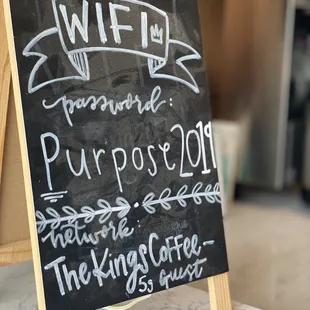 WIFI
password:
Purpose2019
network:
TheKingsCoffee-
5g Guest